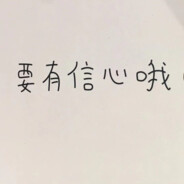 要有信心哦